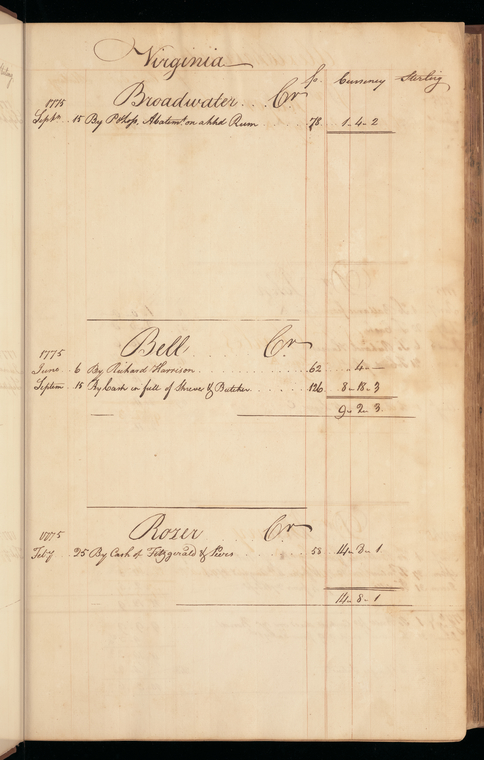 Virginia
fo. Currency Sterling
1775 Broadwater Cr
Septr. 15 By P&Loss, Abatemt. on a hhd Rum 78 1 " 4 " 2
1775 Bell Cr
June 6 By Richard Harrison 62 " 4 " —
Septem 15 By Cash in full of Shreve & Butcher 126 8 " 18 " 3
9 " 2 " 3
1775 Rozer Cr
Feby 25 By Cash of Fitzgerald & Peers 58 14 " 8 " 1
14 " 8 " 1